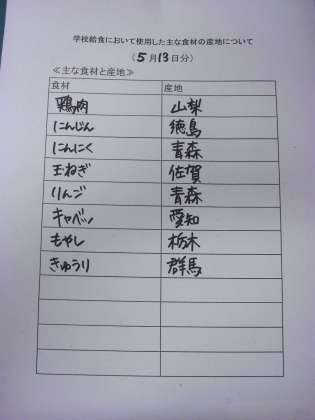 学校給食において使用した主な食材の産地について
（5月13日分）
≪主な食材と産地≫
食材 産地
鶏肉 山梨
にんじん 徳島
にんにく 青森
玉ねぎ 佐賀
りんご 青森
キャベツ 愛知
もやし 栃木
きゅうり 群馬